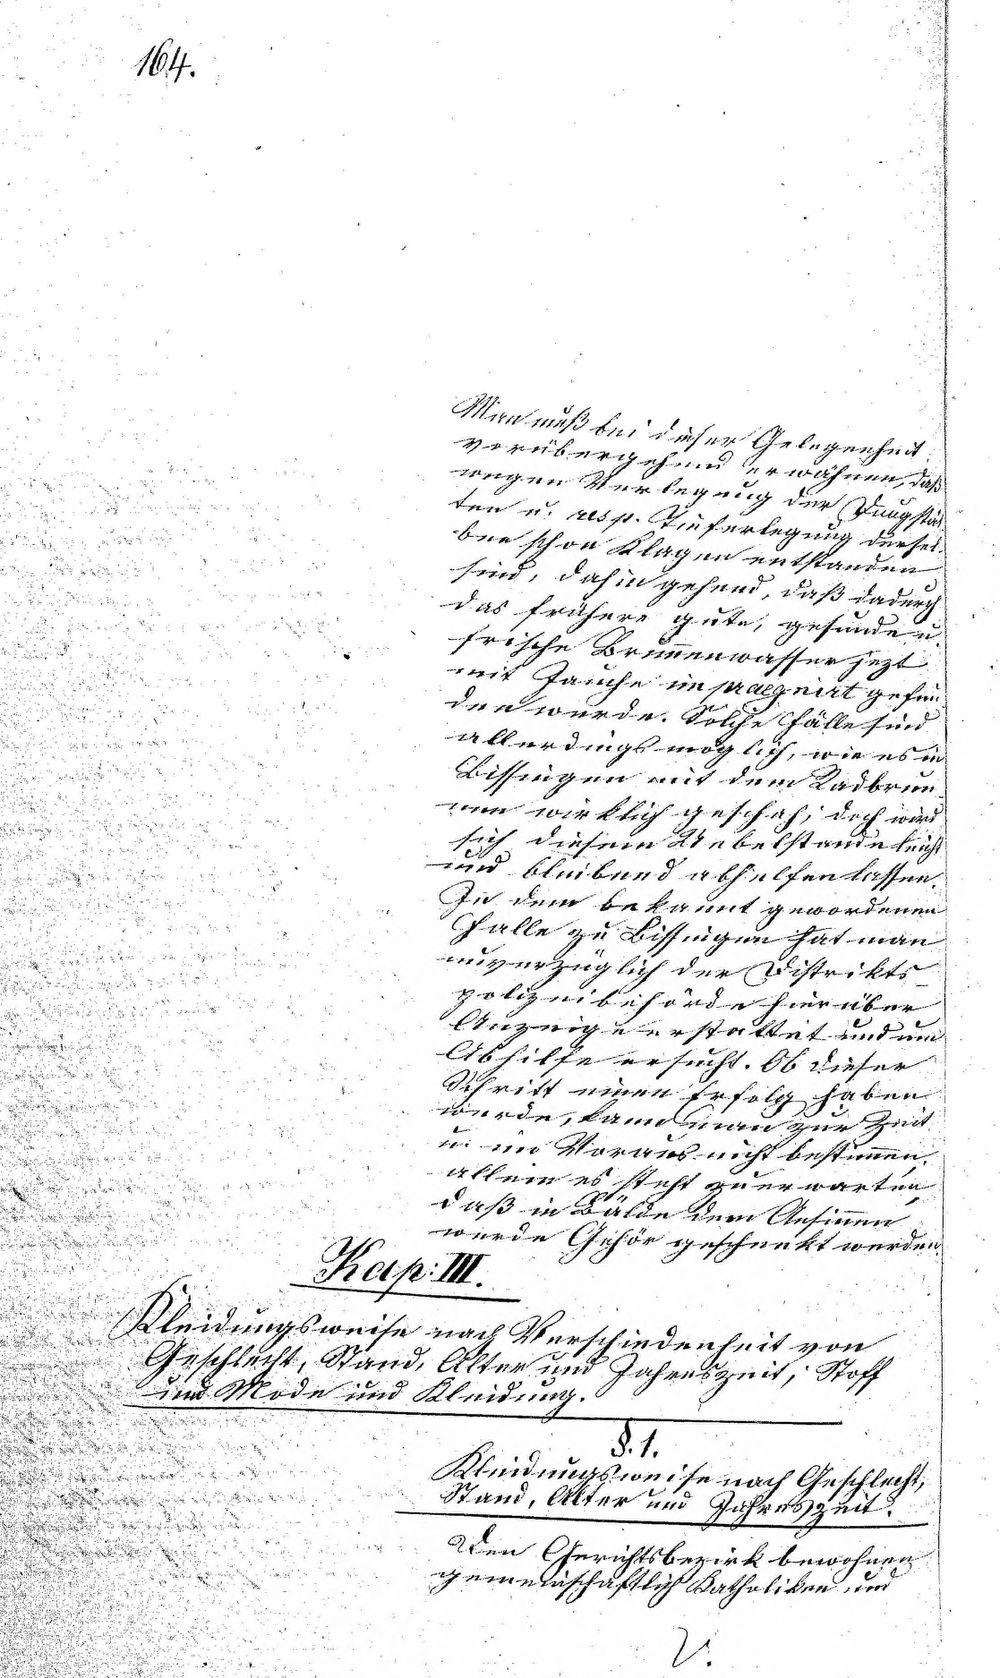 164.
Man muß bei dieser Gelegenheit
vorübergehend erwähnen, daß
wegen Verlegung der Dungstät
ten u. resp. Tieferlegung dersel-
ben schon Klagen entstanden
sind, dahin gehend, daß dadurch
das frühere gute, gesunde u.
frische Brunnenwasser jezt
mit Jauche impraegnirt gefun
den werde. Solche Fälle sind
allerdings möglich, wie es in
Bissingen mit dem Radbrun-
nen wirklich geschah; doch wird
sich diesem Uebelstande leicht
und bleibend abhelfen lassen.
In dem bekannt gewordenen
Falle zu Bissingen hat man
unverzüglich der Distrikts-
polizeibehörde hierüber
Anzeige erstattet und um
Abhilfe ersucht. Ob dieser
Schritt einen Erfolg haben
werde, kann man zur Zeit
u. im Voraus nicht bestimmen,
allein es steht zu erwarten,
daß in Bälde dem Ansinnen
werde Gehör geschenkt werden.
Kap: III.
Kleidungsweise nach Verschiedenheit von
Geschlecht, Stand, Alter und Jahreszeit; Stoff
und Mode und Kleidung.
§. 1.
Kleidungsweise nach Geschlecht,
Stand, Alter und Jahreszeit.
Den Gerichtsbezirk bewohnen
gemeinschaftlich Katholiken und